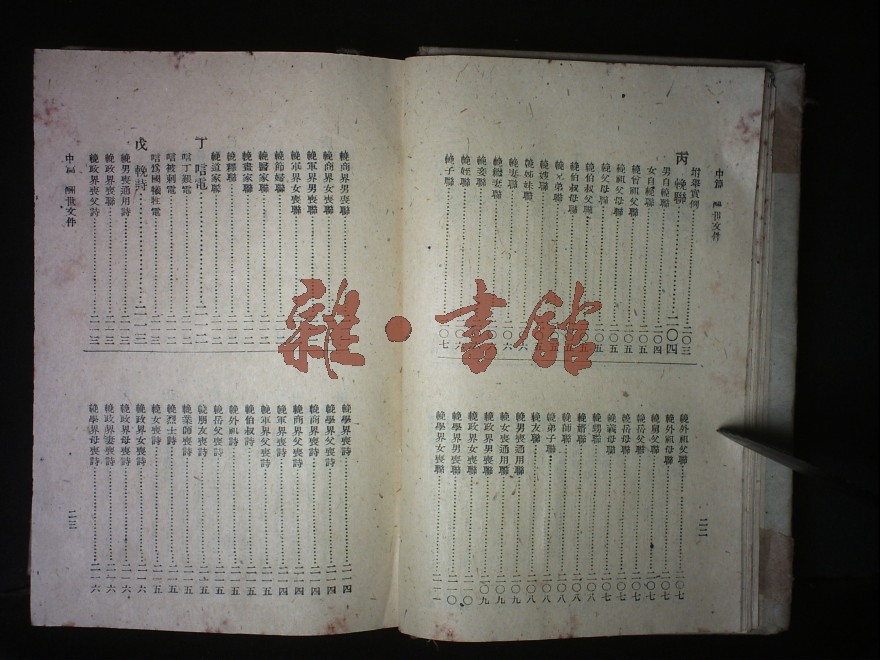 中篇 酬世文件
招舉實例 二〇三
丙 輓聯 二〇四
男自輓聯 二〇四
女自輓聯 二〇五
輓曾祖父聯 二〇五
輓祖父母聯 二〇五
輓父母聯 二〇五
輓伯叔父聯
輓伯叔母聯
輓兄弟聯
輓嫂聯
輓姊妹聯
輓妻聯 二〇六
輓繼妻聯
輓妾聯
輓姪聯
輓子聯 二〇七
輓外祖父聯 二〇七
輓外祖母聯 二〇七
輓舅父聯 二〇七
輓岳父聯 二〇七
輓岳母聯 二〇七
輓義母聯 二〇八
輓甥聯 二〇八
輓婿聯 二〇八
輓師聯 二〇八
輓弟子聯 二〇八
輓友聯 二〇八
輓男喪通用聯 二〇九
輓女喪通用聯 二〇九
輓政界男喪聯 二〇九
輓政界女喪聯 二一〇
輓學界男喪聯 二一〇
輓學界女喪聯 二一一
二二
輓商界男喪聯
輓商界女喪聯
輓軍界男喪聯
輓軍界女喪聯
輓節婦聯
輓醫家聯
輓畫家聯
輓釋聯
輓道家聯
丁 唁電 二一二
唁丁艱電
唁被刺電
唁爲國犧牲電
戊 輓詩 二一三
輓男喪通用詩 二一三
輓政界喪聯 二一三
輓政界喪父詩 二一三
中篇 酬世文件
輓學界喪詩 二一四
輓學界父喪詩 二一四
輓商界喪詩 二一四
輓商界父喪詩 二一四
輓軍界喪詩 二一四
輓軍界父喪詩 二一五
輓伯叔詩 二一五
輓外祖詩 二一五
輓岳父喪詩 二一五
輓朋友喪詩 二一五
輓業師喪詩 二一五
輓烈士詩 二一五
輓女喪詩 二一五
輓政界女喪詩 二一六
輓政界母喪詩 二一六
輓政界妻喪詩 二一六
輓學界母喪詩 二一六
二三
雜·書館